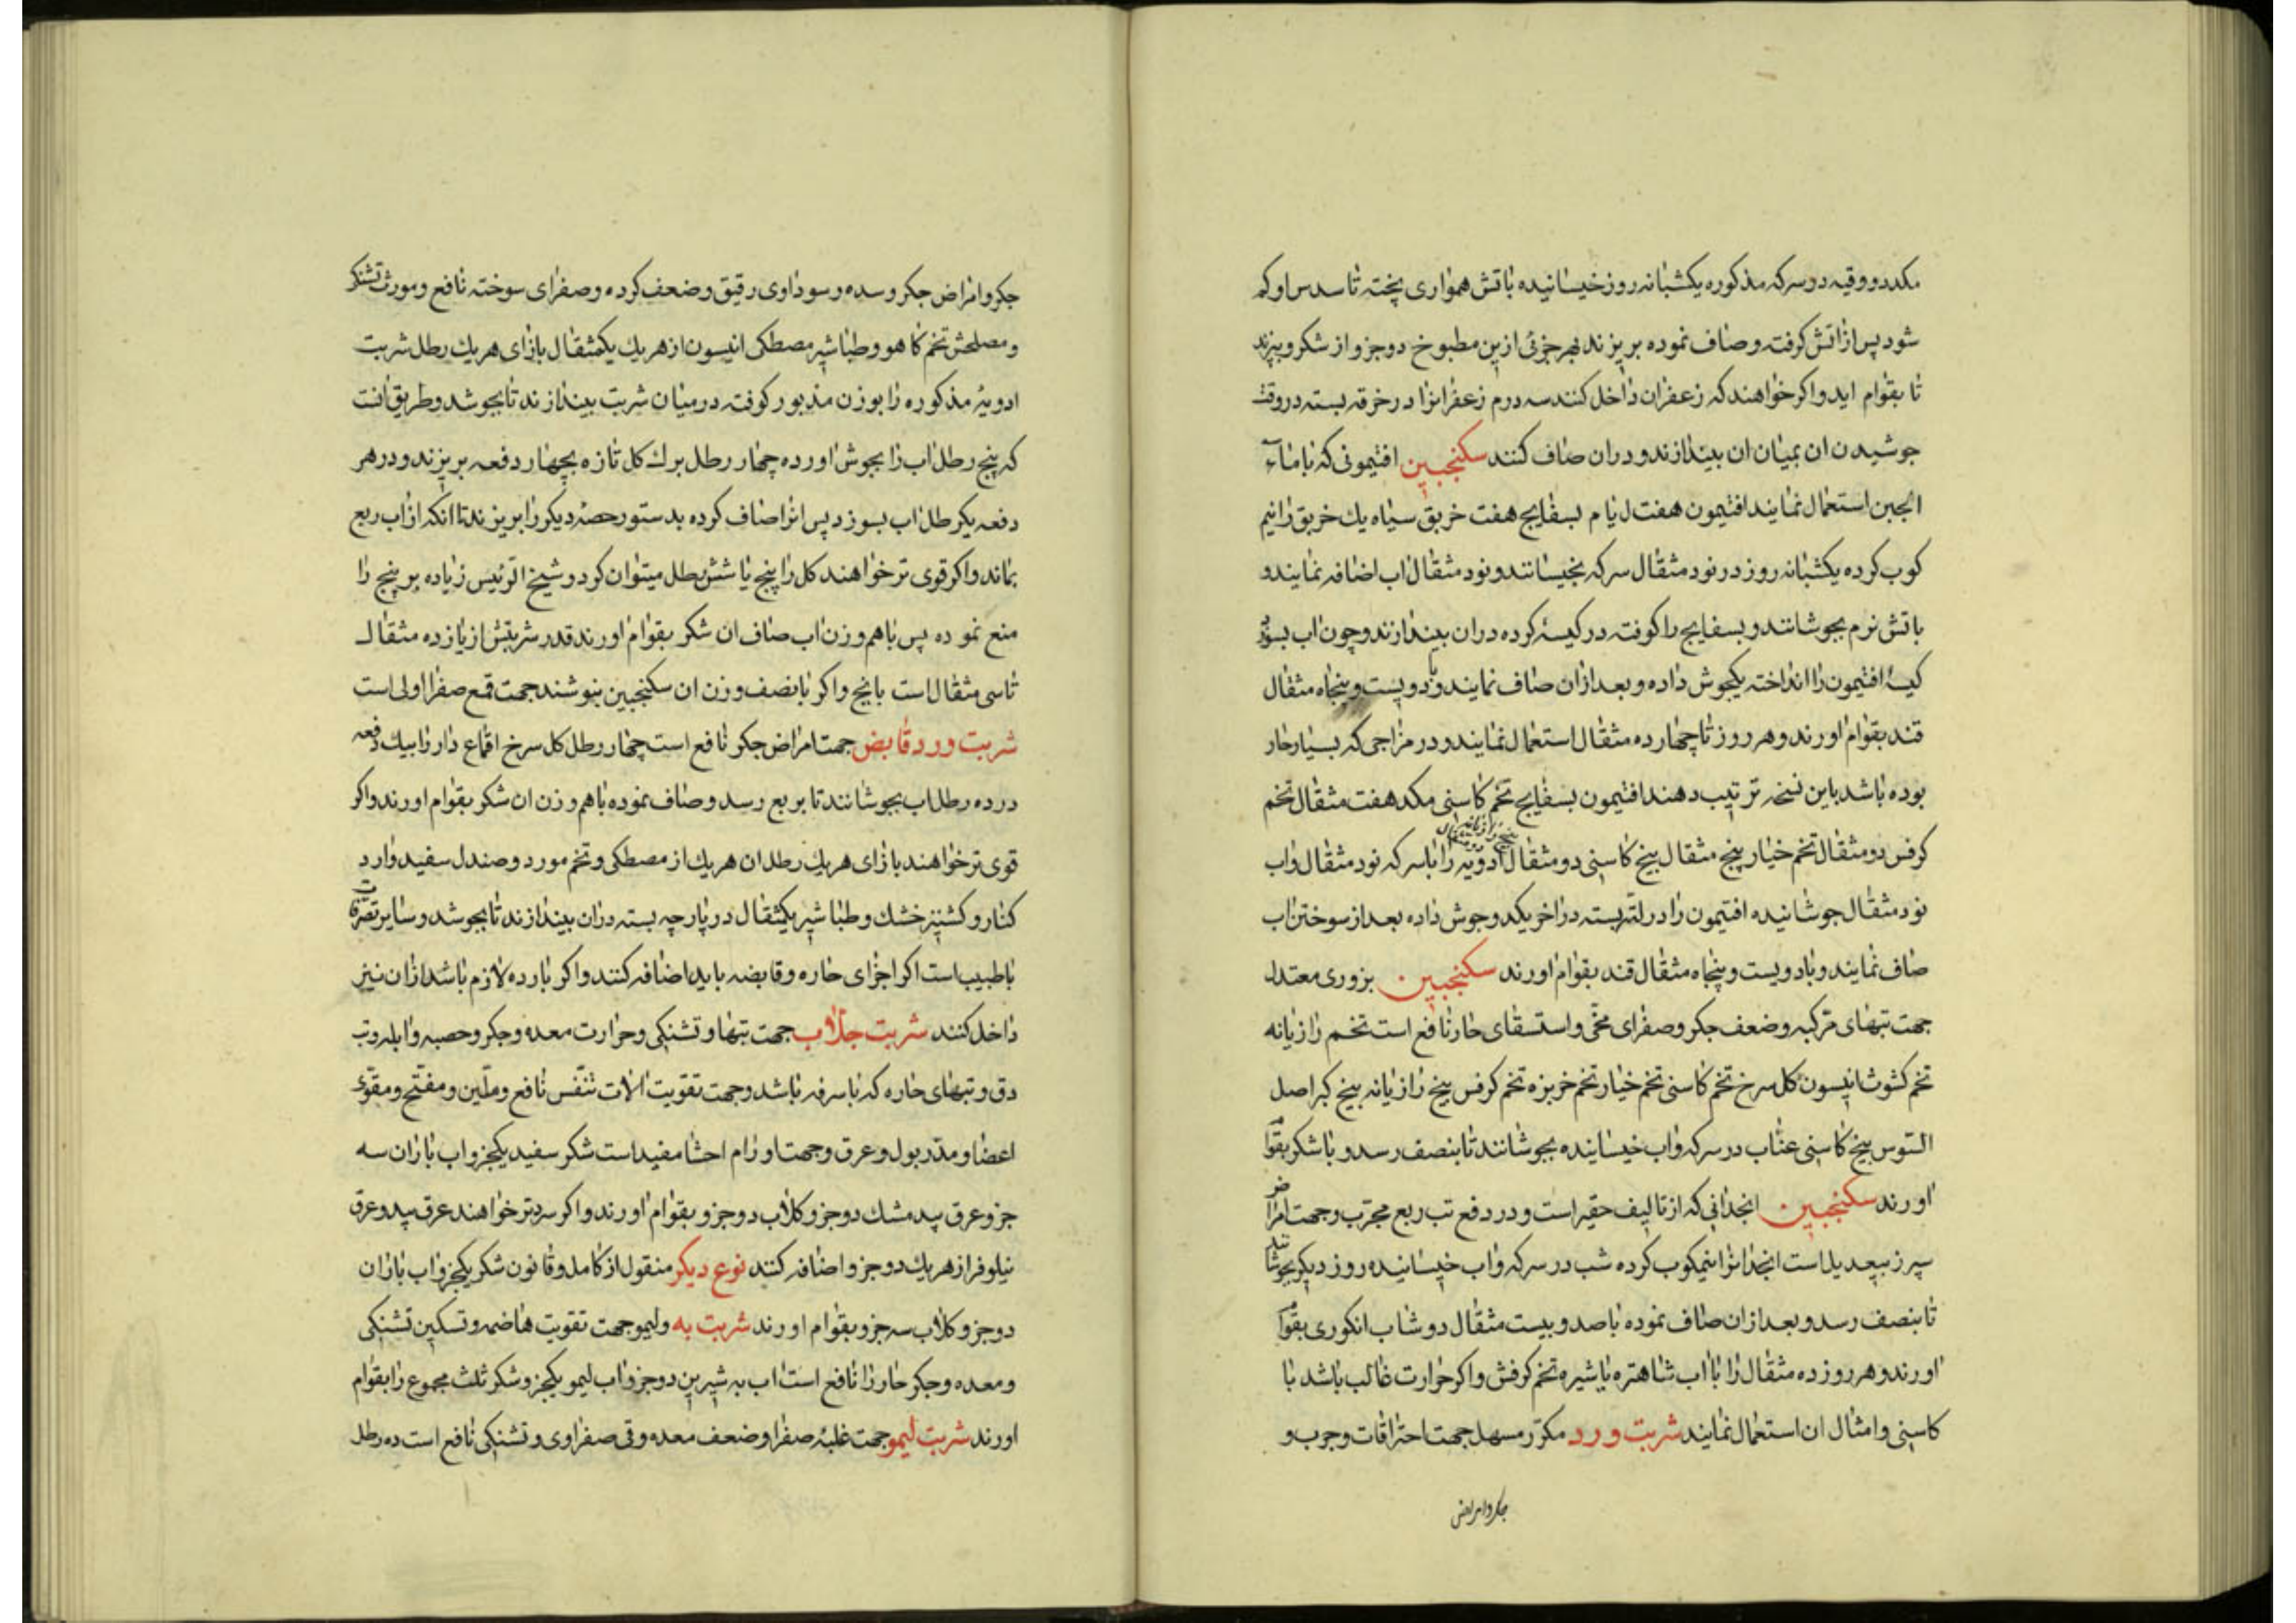 مکدد ووقیه دوسرکه مذکوره یکشبانه روز خیسانیده باتش همواری پخته تا سدس او کم
شود پس از اتش کرفته وصاف نموده بریزند بهر جزئی ازین مطبوخ دوجزو از شکر وبپزند
تا بقوام اید واکر خواهند که زعفران داخل کنند سه درم زعفرانرا در خرقه بسته دروقت
جوشیدن ان بمیان ان بیندازند ودران صاف کنند سکنجبین افتیمونی که با ماء
الجبن استعمال نمایند افتیمون هفت بسفایج هفت خربق سیاه یك خربق را نیم
کوب کرده یکشبانه روز در نود مثقال سرکه بخیسانند ونود مثقال اب اضافه نمایند و
باتش نرم بجوشانند وبسفایج را کوفته در کیسۀ کرده دران بیندازند وچون اب بسوزد
کیسۀ افتیمون را انداخته یکجوش داده وبعد ازان صاف نمایند وبا دویست وپنجاه مثقال
قند بقوام اورند وهر روز تا چهارده مثقال استعمال نمایند ودر مزاجی که بسیار حار
بوده باشد باین نسخه ترتیب دهند افتیمون بسفایج تخم کاسنی مکد هفت مثقال تخم
کرفس دو مثقال تخم خیار پنج مثقال بیخ کاسنی دو مثقال ادویه را با سرکه نود مثقال واب
نود مثقال جوشانیده افتیمون را در لته بسته در اخر یکدو جوش داده بعد از سوختن اب
صاف نمایند وبا دویست وپنجاه مثقال قند بقوام اورند سکنجبین بزوری معتدل
جهت تبهای مرکبه وضعف جکر وصفرای محی واستسقای حار نافع است تخم رازیانه
تخم کشوث انیسون کل سرخ تخم کاسنی تخم خیار تخم خربزه تخم کرفس بیخ رازیانه بیخ کبر اصل
السوس بیخ کاسنی عناب در سرکه واب خیسانیده بجوشانند تا بنصف رسد وبا شکر بقوام
اورند سکنجبین انجدانی که از تالیف حقیر است ودر دفع تب ربع مجرب وجهت امراض
سپرز بیعدیل است انجدانرا نیمکوب کرده شب در سرکه واب خیسانیده روز دیکر بجوشانند
تا بنصف رسد وبعد ازان صاف نموده با صد وبیست مثقال دوشاب انکوری بقوام
اورند وهر روز ده مثقال را با اب شاهتره یا شیره تخم کرفش واکر حرارت غالب باشد با
کاسنی وامثال ان استعمال نمایند شربت ورد مکرر مسهل جهت احتراقات وجرب و
جکر وامراض
جکر وامراض جکر وسده وسوداوی رقیق وضعف کرده وصفرای سوخته نافع ومورث تشنکی
ومصلحش تخم کاهو وطباشیر مصطکی انیسون از هریك یکمثقال بازای هریك رطل شربت
ادویۀ مذکوره را بوزن مذبور کوفته درمیان شربت بیندازند تا بجوشد وطریق انست
که پنج رطل اب را بجوش اورده چهار رطل برك کل تازه بچهار دفعه بریزند ودر هر
دفعه یکرطل اب بسوزد پس انرا صاف کرده بدستور حصۀ دیکر را بریزند تا انکه از اب ربع
بماند واکر قوی تر خواهند کل را پنج یا شش رطل میتوان کرد وشیخ الرئیس زیاده بر پنج را
منع نموده پس باهم وزن اب صاف ان شکر بقوام اورند قدر شربتش از یازده مثقال
تا سی مثقال است بایخ واکر با نصف وزن ان سکنجبین بنوشند جهت قمع صفرا اولی است
شربت ورد قابض جهت امراض جکر نافع است چهار رطل کل سرخ اقماع دار را بیك دفعه
در ده رطل اب بجوشانند تا بربع رسد وصاف نموده باهم وزن ان شکر بقوام اورند واکر
قوی تر خواهند بازای هریك رطل ان هریك از مصطکی وتخم مورد وصندل سفید وارد
کنار وکشنیز خشك وطباشیر یکمثقال در پارچه بسته دران بیندازند تا بجوشد وسایر تصرفات
با طبیب است اکر اجزای حاره وقابضه باید اضافه کنند واکر بارده لازم باشد ازان نیز
داخل کنند شربت جلاب جهت تبها وتشنکی وحرارت معده وجکر وحصبه وابله وتب
دق وتبهای حاره که با سرفه باشد وجهت تقویت الات تنفس نافع وملین ومفتح ومقوی
اعضا ومدر بول وعرق وجهت اورام احشا مفید است شکر سفید یکجزو اب باران سه
جزو عرق بیدمشك دوجزو کلاب دوجزو بقوام اورند واکر سردتر خواهند عرق بید وعرق
نیلوفر از هریك دوجزو اضافه کنند نوع دیکر منقول از کامل وقانون شکر یکجزو اب باران
دوجزو کلاب سه جزو بقوام اورند شربت به ولیمو جهت تقویت هاضمه وتسکین تشنکی
ومعده وجکر حار را نافع است اب به شیرین دوجزو اب لیمو یکجزو شکر ثلث مجموع را بقوام
اورند شربت لیمو جهت غلبۀ صفرا وضعف معده وقی صفراوی وتشنکی نافع است ده رطل